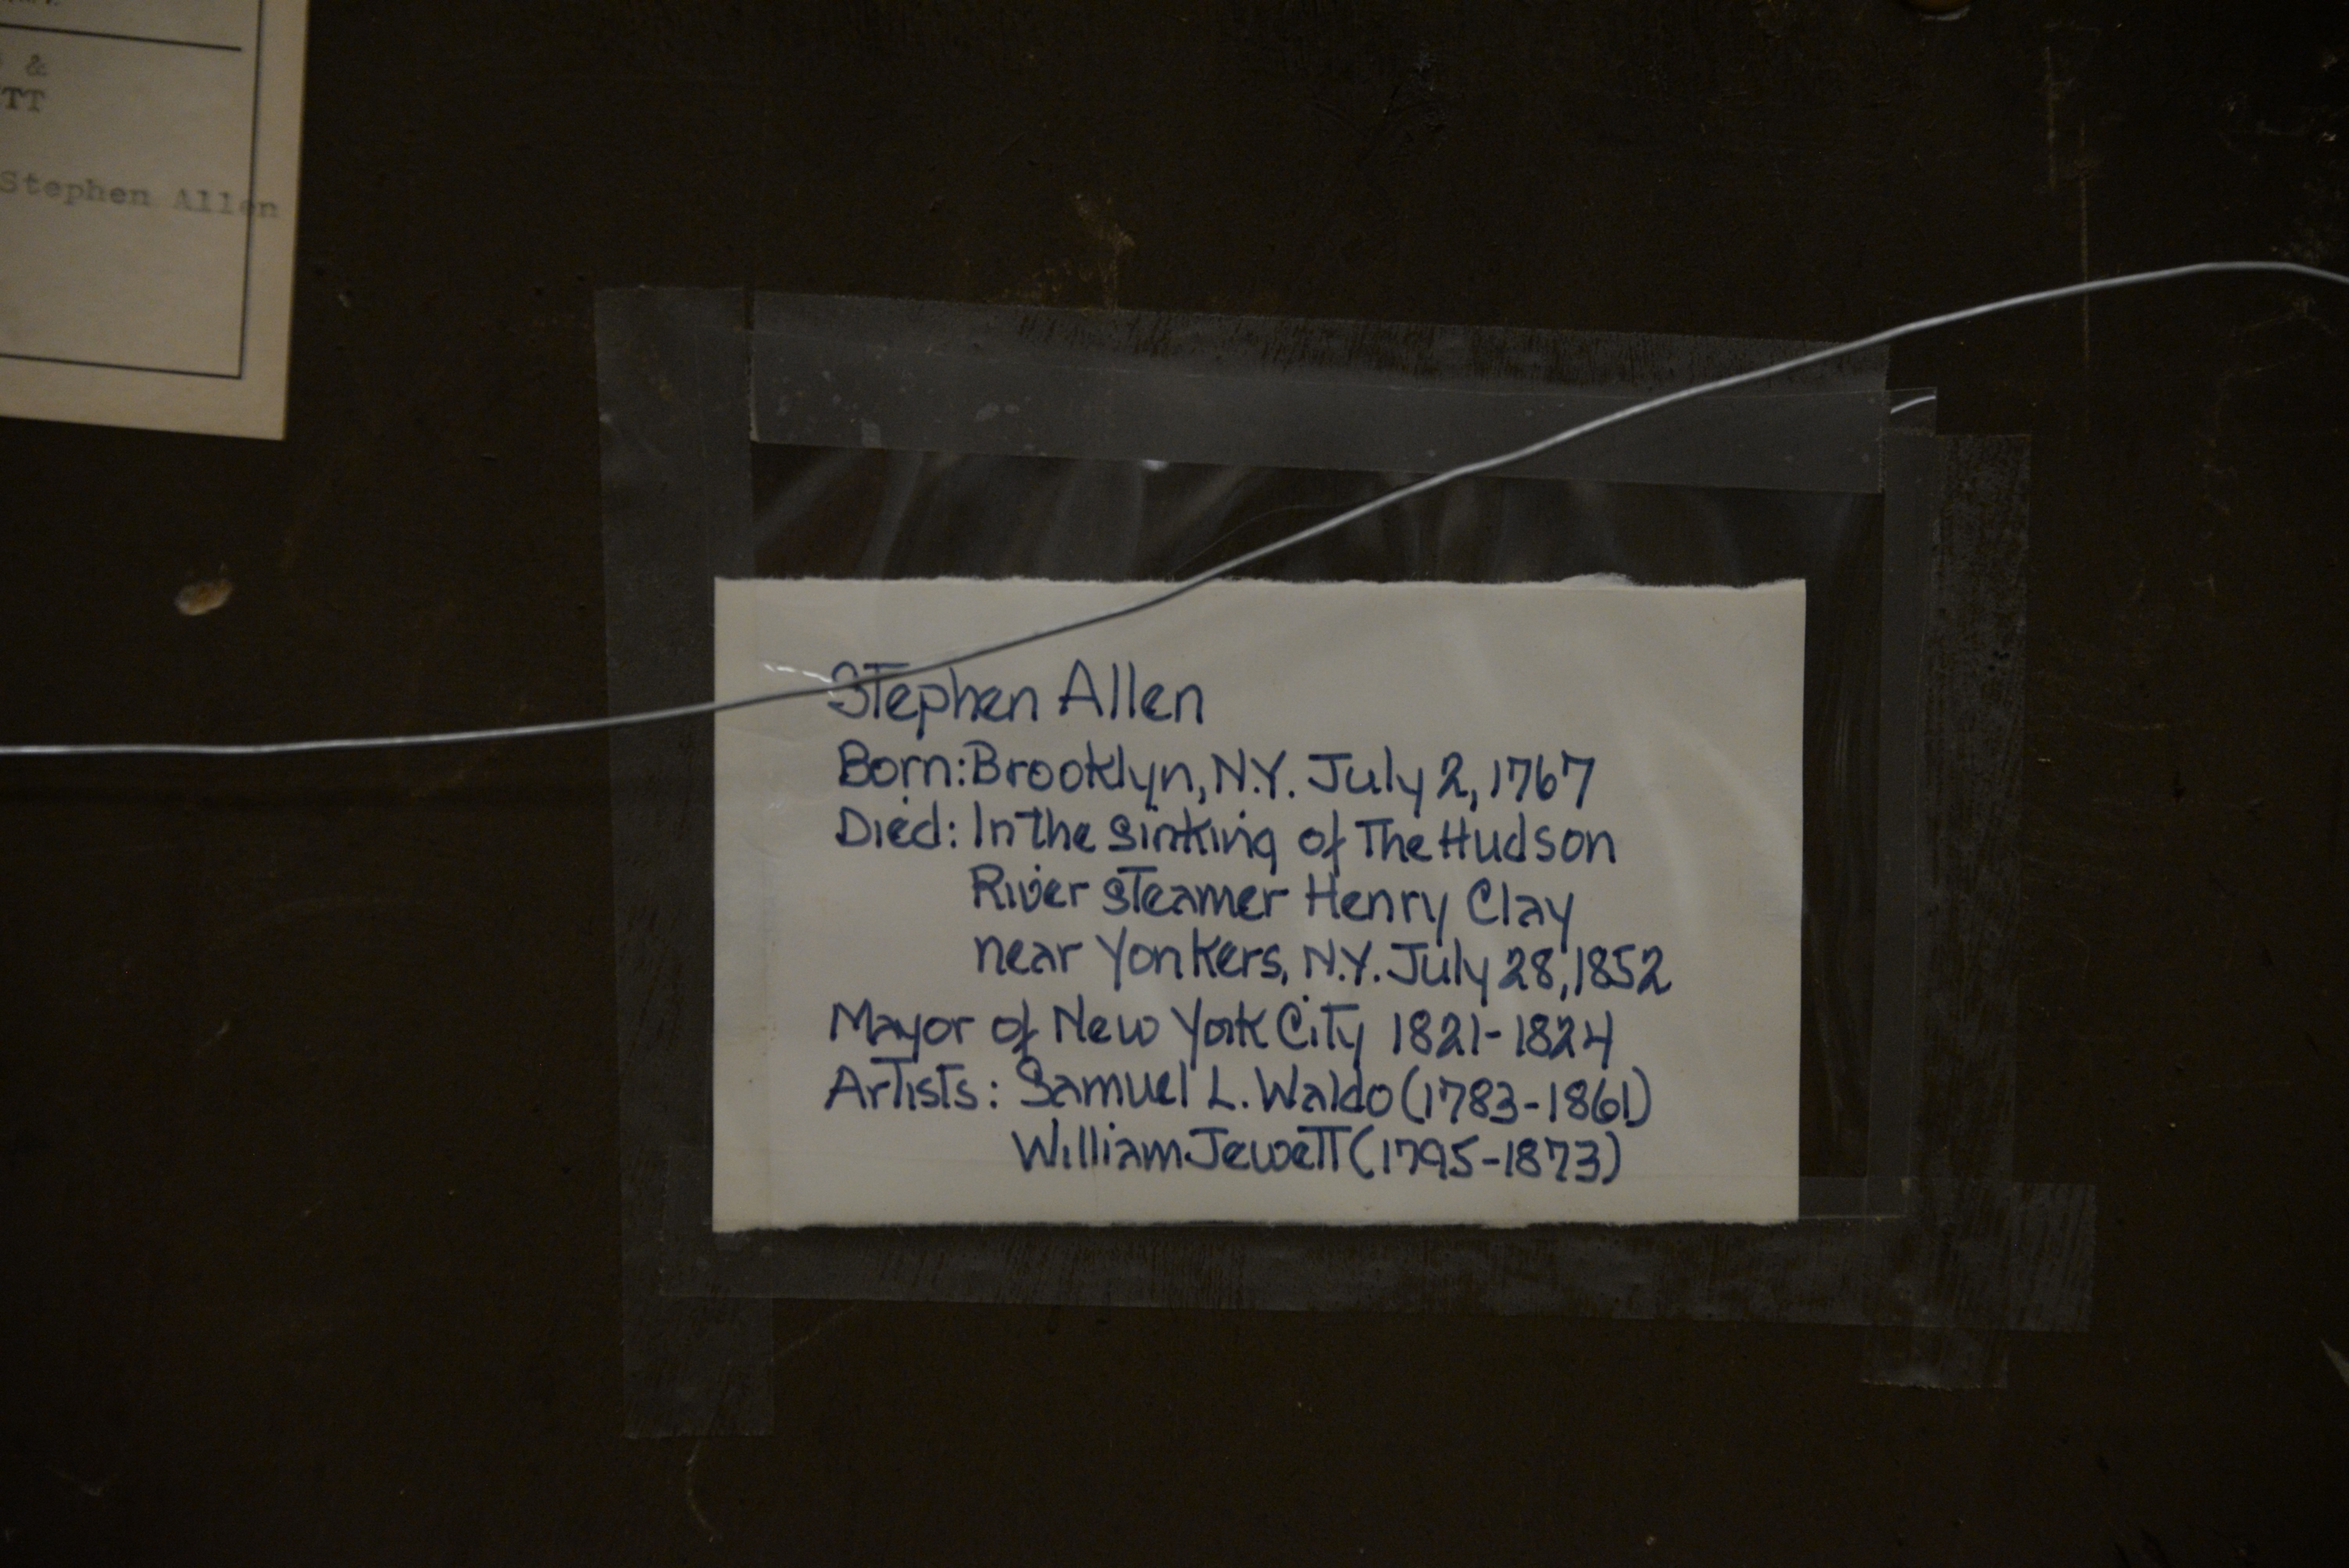 &
TT
Stephen Allen
Stephen Allen
Born: Brooklyn, N.Y. July 2, 1767
Died: In the sinking of The Hudson
River Steamer Henry Clay
near Yonkers, N.Y. July 28, 1852
Mayor of New York City 1821-1824
Artists: Samuel L. Waldo (1783-1861)
William Jewett (1795-1873)